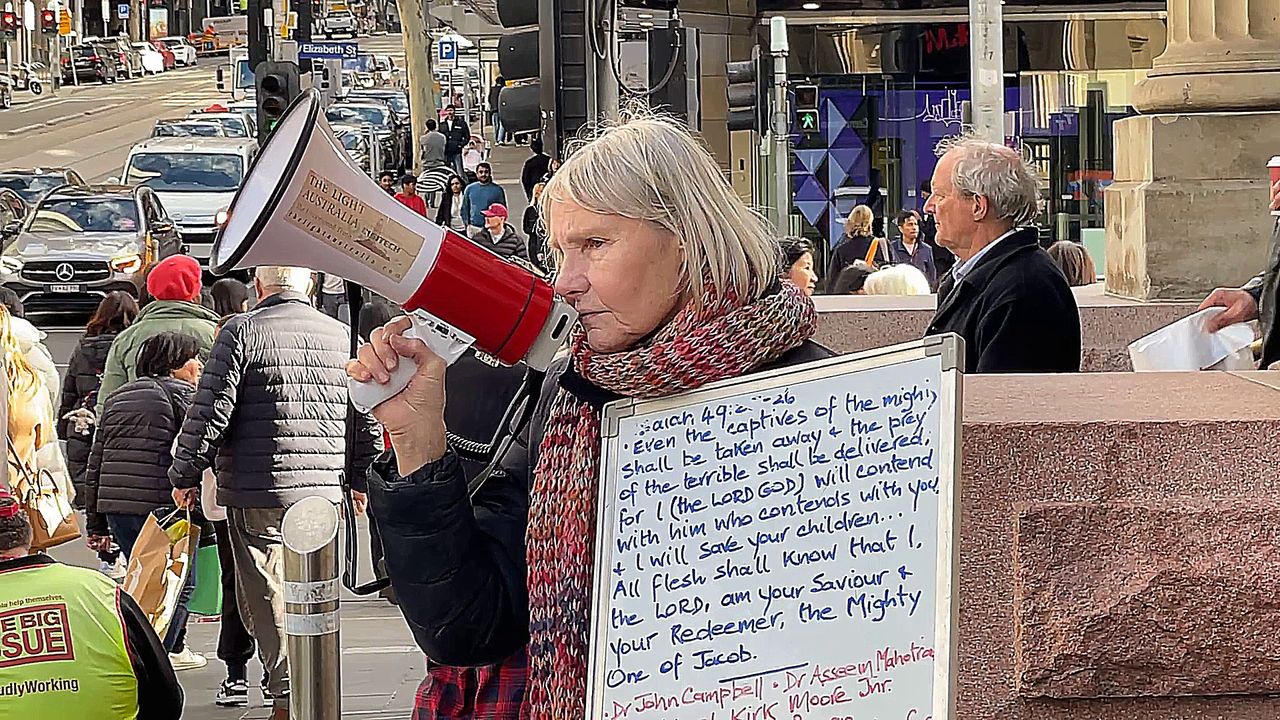 Elizabeth St
P
THE LIGHT
AUSTRALIA
49:
-26
Even the captives of the mighty
shall be taken away & the prey
of the terrible shall be delivered,
for I (the LORD GOD) will contend
with him who contends with you,
& I will save your children...
All flesh shall know that I,
the LORD, am your Saviour &
your Redeemer, the Mighty
One of Jacob.
Dr John Campbell • Dr Aseem Malhotra
Kirk Moore Jnr.
help themselves.
BIG
ISSUE
Working